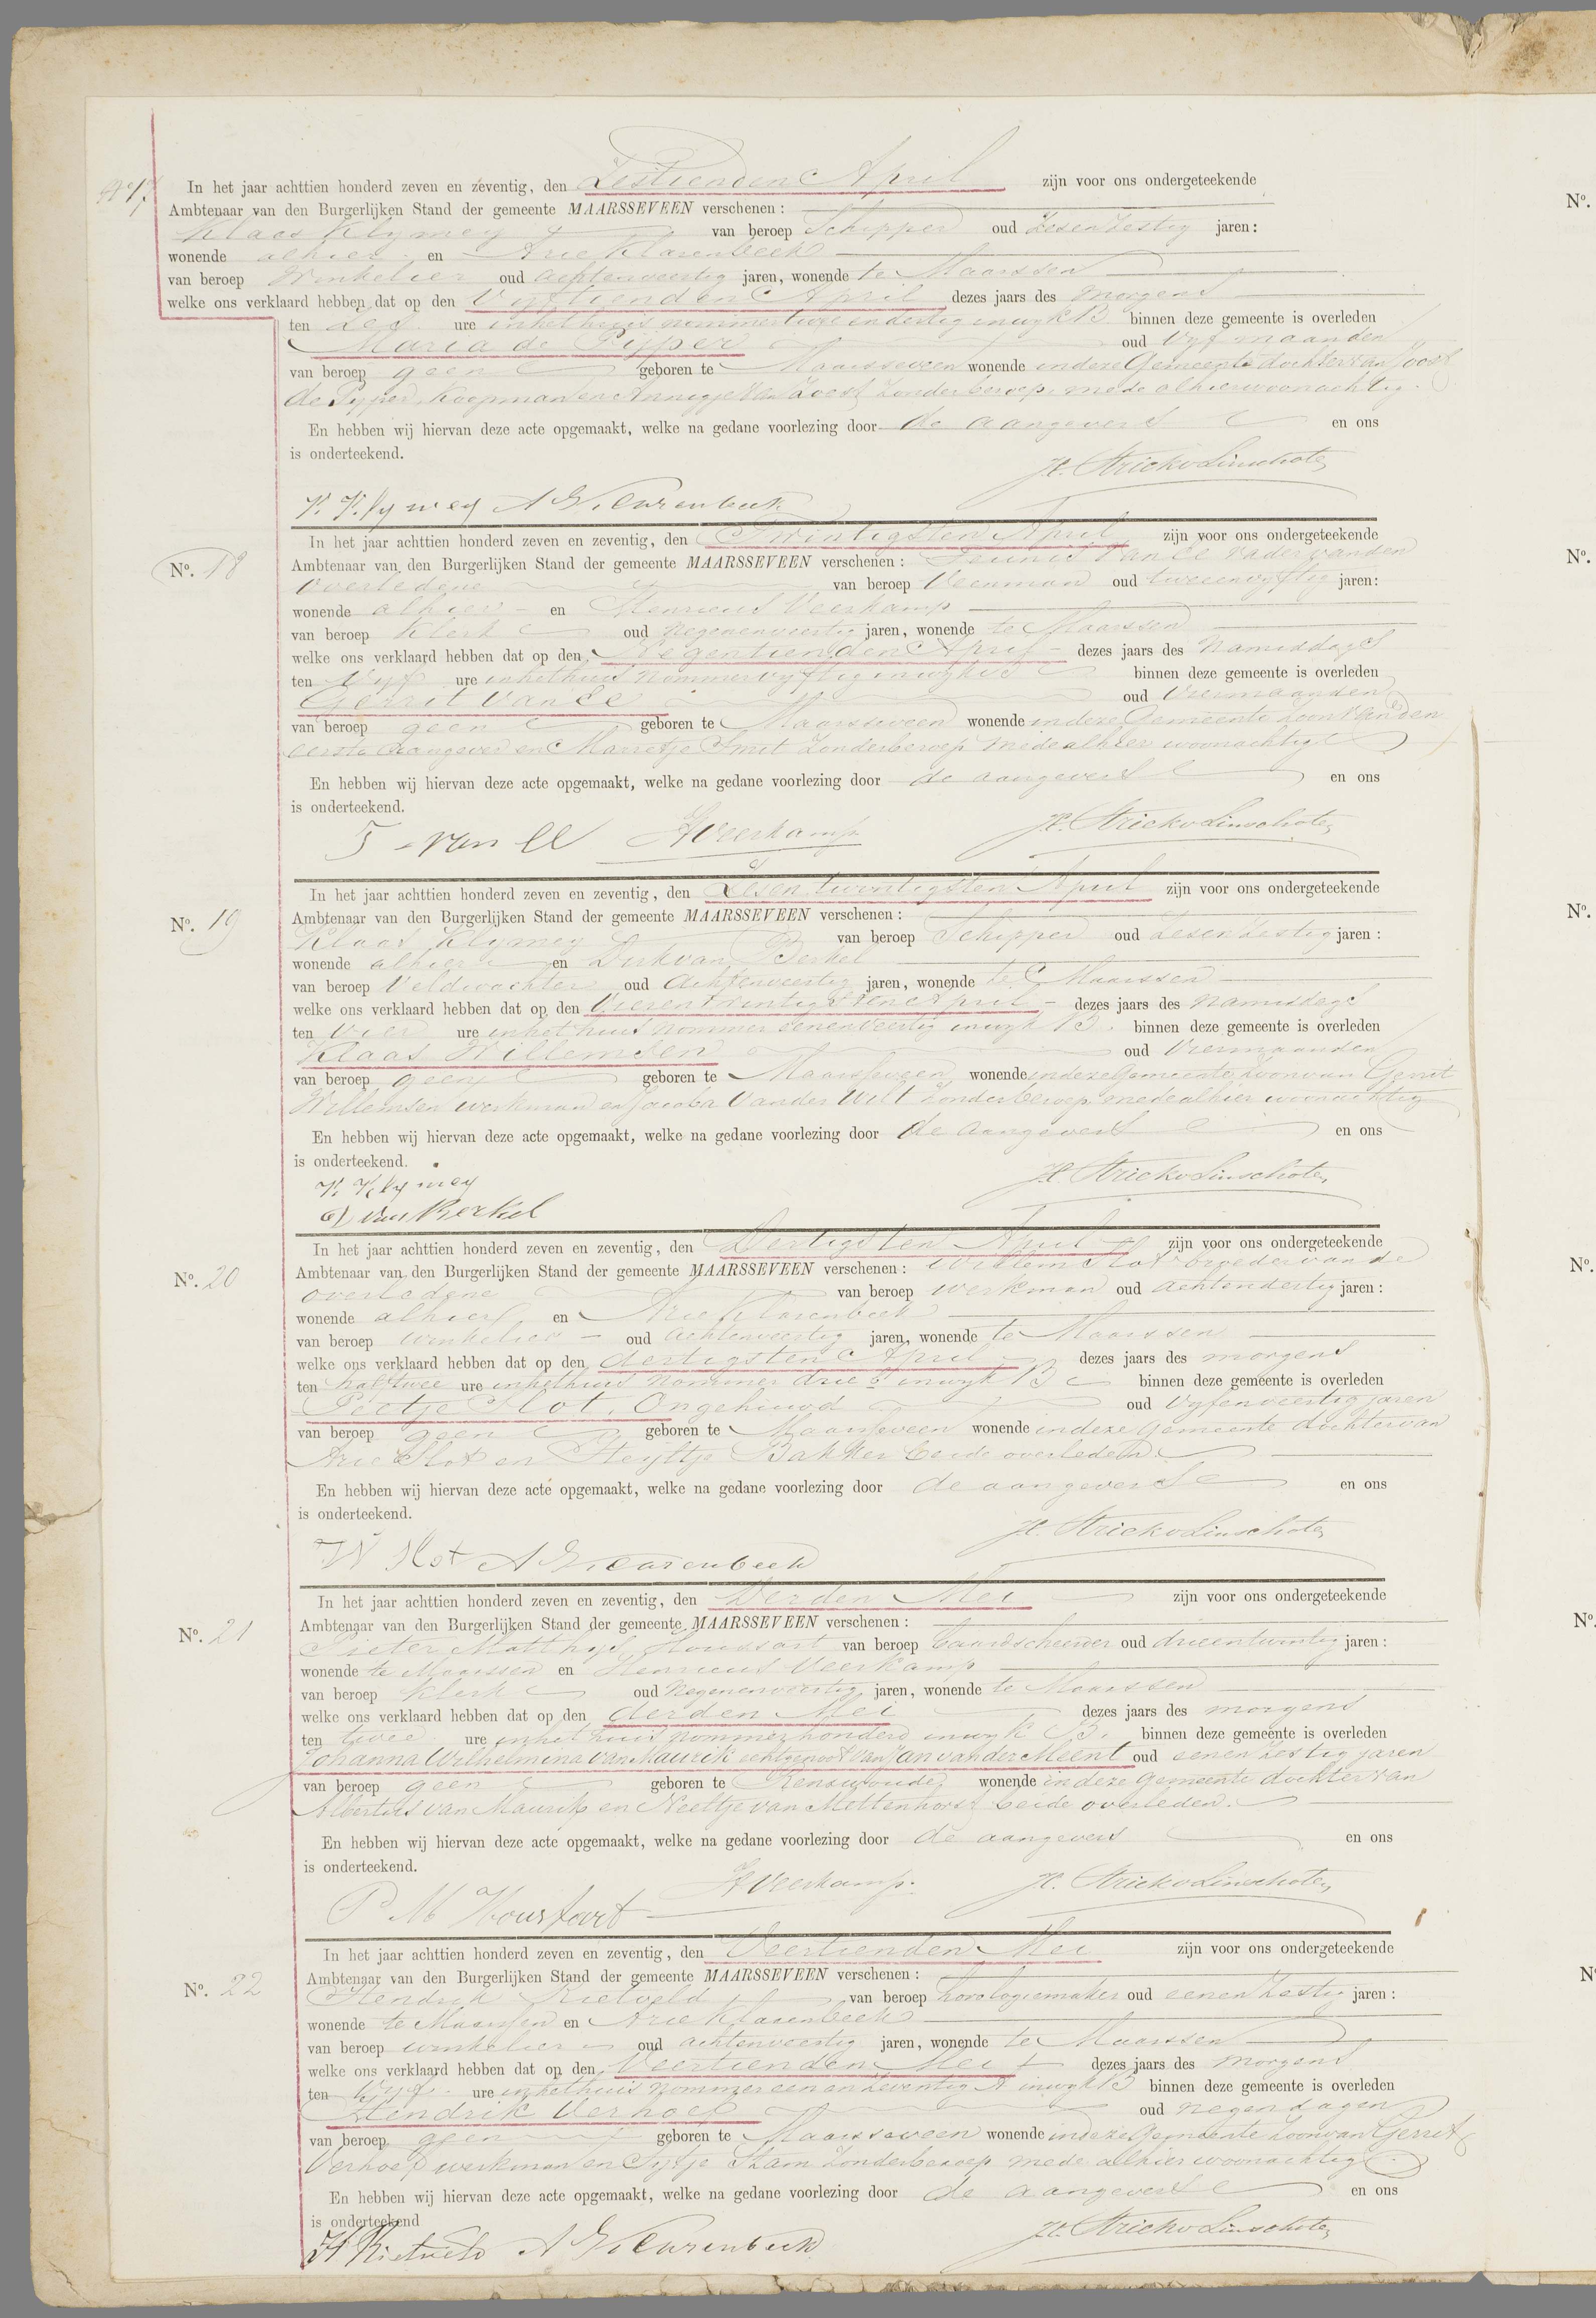 No 17. In het jaar achttien honderd zeven en zeventig, den Zestienden April zijn voor ons ondergeteekende
Ambtenaar van den Burgerlijken Stand der gemeente MAARSSEVEEN verschenen:
Klaas Klymey van beroep Schipper oud Zesen Zestig jaren:
wonende alhier en Arie Klarenbeek
van beroep Winkelier oud achtenveertig jaren, wonende te Maarssen
welke ons verklaard hebben dat op den Vyftienden April dezes jaars des morgens
ten Zes ure inhethuis nommer twee endertig inwyk B. binnen deze gemeente is overleden
Maria de Pijper oud Vyf maanden
van beroep geen geboren te Maarsseveen wonende indeze Gemeente dochter van Joost
de Pyper, Koopman en Annigje van Zoest Zonder beroep, mede alhier woonachtig.
En hebben wij hiervan deze acte opgemaakt, welke na gedane voorlezing door de aangevers en ons
is onderteekend.
H. Strick v Linschoten
K. Klymey A Klarenbeek
In het jaar achttien honderd zeven en zeventig, den Twintigsten April zijn voor ons ondergeteekende
No. 18 Ambtenaar van den Burgerlijken Stand der gemeente MAARSSEVEEN verschenen: Teunis Van Ee Vader vanden
Overledene van beroep Veenman oud tweeenvyftig jaren:
wonende alhier en Henricus Veerkamp
van beroep Klerk oud Negenenveertig jaren, wonende te Maarssen
welke ons verklaard hebben dat op den Negentienden April dezes jaars des Namiddags
ten Vyf ure inhethuis Nommer vyftig inwyk binnen deze gemeente is overleden
Gerrit Van Ee oud Viermaanden
van beroep geen geboren te Maarsseveen wonende indeze Gemeente Zoon van den
eerste Aangever en Marretje Smit Zonderberoep mede alhier woonachtig
En hebben wij hiervan deze acte opgemaakt, welke na gedane voorlezing door de aangevers en ons
is onderteekend.
T van Ee HVeerkamp. H. Strick v Linschoten
In het jaar achttien honderd zeven en zeventig, den Zesen twentigsten April zijn voor ons ondergeteekende
No. 19 Ambtenaar van den Burgerlijken Stand der gemeente MAARSSEVEEN verschenen:
Klaas Klymey van beroep Schipper oud Zesen Zestig jaren:
wonende alhier en Dirk van Berkel
van beroep Veldwachter oud Achtenveertig jaren, wonende te Maarssen
welke ons verklaard hebben dat op den Vierentwintigsten April dezes jaars des Namiddags
ten Vier ure inhethuis Nommer eenenveertig inwyk B. binnen deze gemeente is overleden
Klaas Willemsen oud Viermaanden
van beroep geen geboren te Maarsseveen wonende indeze Gemeente Zoon van Gerrit
Willemsen werkman en Jacoba Vander Wilt Zonderberoep mede alhier woonachtig
En hebben wij hiervan deze acte opgemaakt, welke na gedane voorlezing door de aangevers en ons
is onderteekend.
K. Klymey H. Strick v Linschoten
D van Berkel
In het jaar achttien honderd zeven en zeventig, den Dertigsten April zijn voor ons ondergeteekende
No. 20 Ambtenaar van den Burgerlijken Stand der gemeente MAARSSEVEEN verschenen: Willem Slot broeder van de
overledene van beroep werkman oud achtendertig jaren:
wonende alhier en Arie Klarenbeek
van beroep winkelier oud achtenveertig jaren, wonende te Maarssen
welke ons verklaard hebben dat op den dertigsten April dezes jaars des morgens
ten half twee ure inhethuis Nommer drie inwyk B binnen deze gemeente is overleden
Pietje Slot, Ongehuwd oud Vyfenveertig jaren
van beroep geen geboren te Maarsseveen wonende indeze Gemeente dochter van
Arie Slot en Heyltje Bakker beide overleden
En hebben wij hiervan deze acte opgemaakt, welke na gedane voorlezing door de aangevers en ons
is onderteekend.
H. Strick v Linschoten
W Slot A Klarenbeek
In het jaar achttien honderd zeven en zeventig, den Derden Mei zijn voor ons ondergeteekende
No. 21 Ambtenaar van den Burgerlijken Stand der gemeente MAARSSEVEEN verschenen:
Pieter Matthys Housfort van beroep baardscheerder oud drieentwintig jaren:
wonende te Maarssen en Henricus Veerkamp
van beroep Klerk oud Negenenveertig jaren, wonende te Maarssen
welke ons verklaard hebben dat op den derden Mei dezes jaars des morgens
ten twee ure inhethuis nommer honderd inwyk B. binnen deze gemeente is overleden
Johanna Wilhelmina van Maurik echtgenoot van Jan van der Meent oud eenen Zestig jaren
van beroep geen geboren te Renswoude, wonende in deze gemeente dochter van
Albertus van Maurik en Neeltje van Mettenhorst beide overleden.
En hebben wij hiervan deze acte opgemaakt, welke na gedane voorlezing door de aangevers en ons
is onderteekend.
P M Housfort HVeerkamp. H. Strick v Linschoten
In het jaar achttien honderd zeven en zeventig, den Veertienden Mei zijn voor ons ondergeteekende
No. 22 Ambtenaar van den Burgerlijken Stand der gemeente MAARSSEVEEN verschenen:
Hendrik Rietveld van beroep horologiemaker oud eenen Zestig jaren:
wonende te Maarssen en Arie Klarenbeek
van beroep winkelier oud achtenveertig jaren, wonende te Maarssen
welke ons verklaard hebben dat op den Veertienden Mei dezes jaars des morgens
ten Vyf ure inhethuis Nommer eenenZeventig A inwyk B binnen deze gemeente is overleden
Hendrik Verhoef oud negen dagen
van beroep geen geboren te Maarsseveen wonende indeze Gemeente Zoon van Gerrit
Verhoef werkman en Sytje Stam Zonderberoep mede alhier woonachtig
En hebben wij hiervan deze acte opgemaakt, welke na gedane voorlezing door de aangevers en ons
is onderteekend
H Rietveld A Klarenbeek H. Strick v Linschoten
No.
No.
No.
No.
No.
N